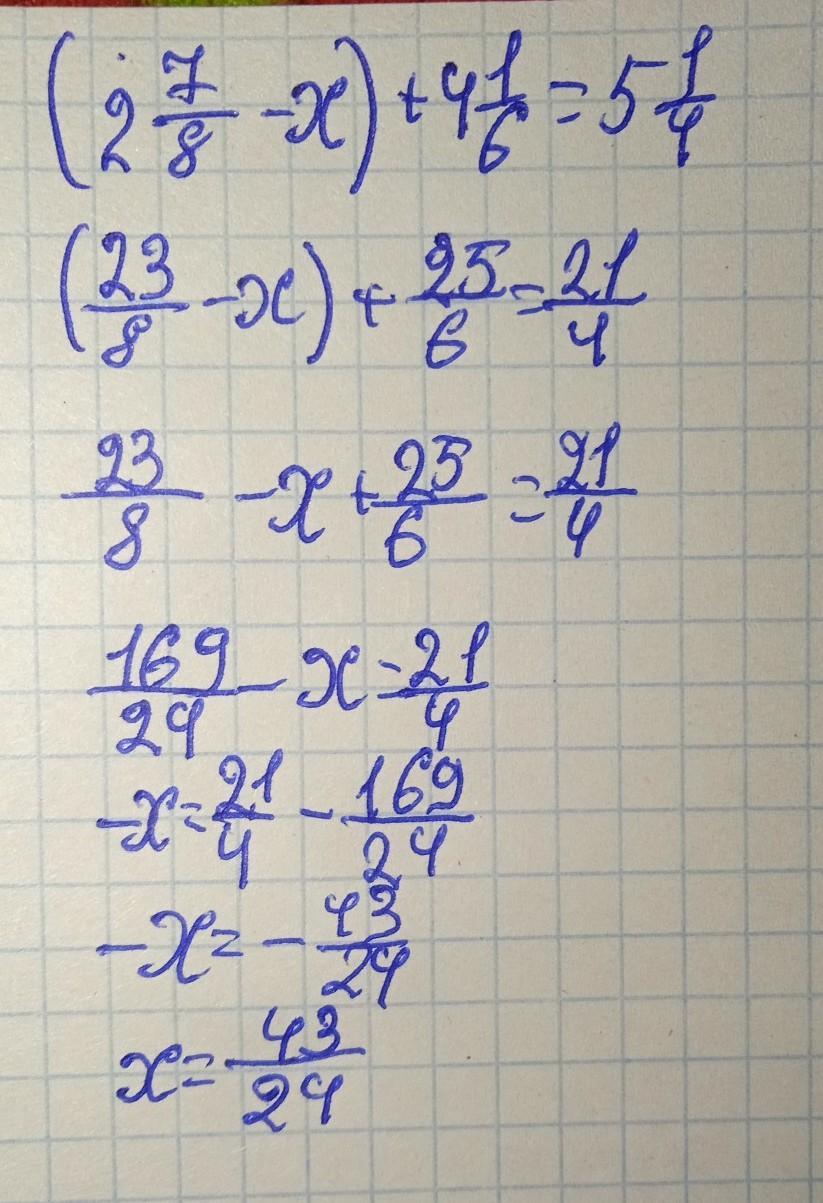 (2 7/8 - x) + 4 1/6 = 5 1/4
(23/8 - x) + 25/6 = 21/4
23/8 - x + 25/6 = 21/4
169/24 - x = 21/4
-x = 21/4 - 169/24
-x = - 43/24
x = 43/24